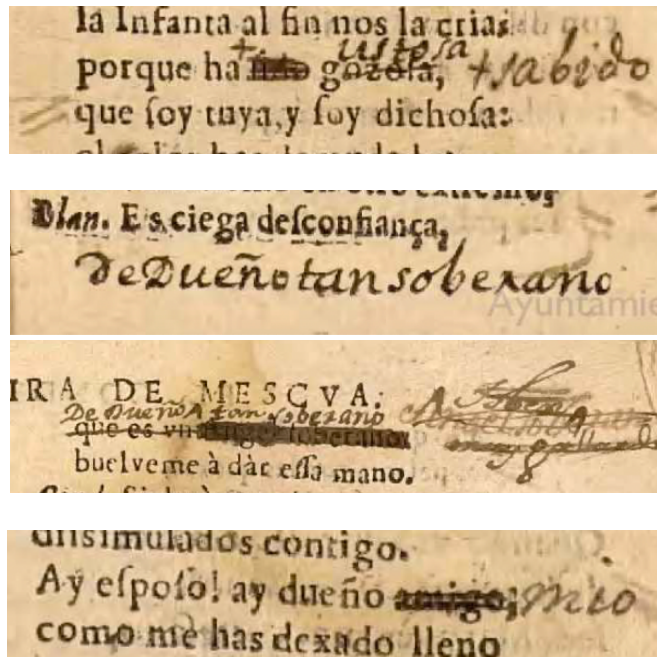 la Infanta al fin nos la cria:
ustosa
porque ha gozosa, + sabido
que ſoy tuya, y ſoy dichoſa:
Blan. Es ciega deſconfiança,
De Dueño tan soberano
Ayuntamie
IRA DE MESCVA.
De Dueño tan soberano
que es vn Angel soberano
buelveme à dàr eſſa mano.
diſsimulados contigo.
Ay eſpoſo! ay dueño amigo; mio
como me has dexado lleno